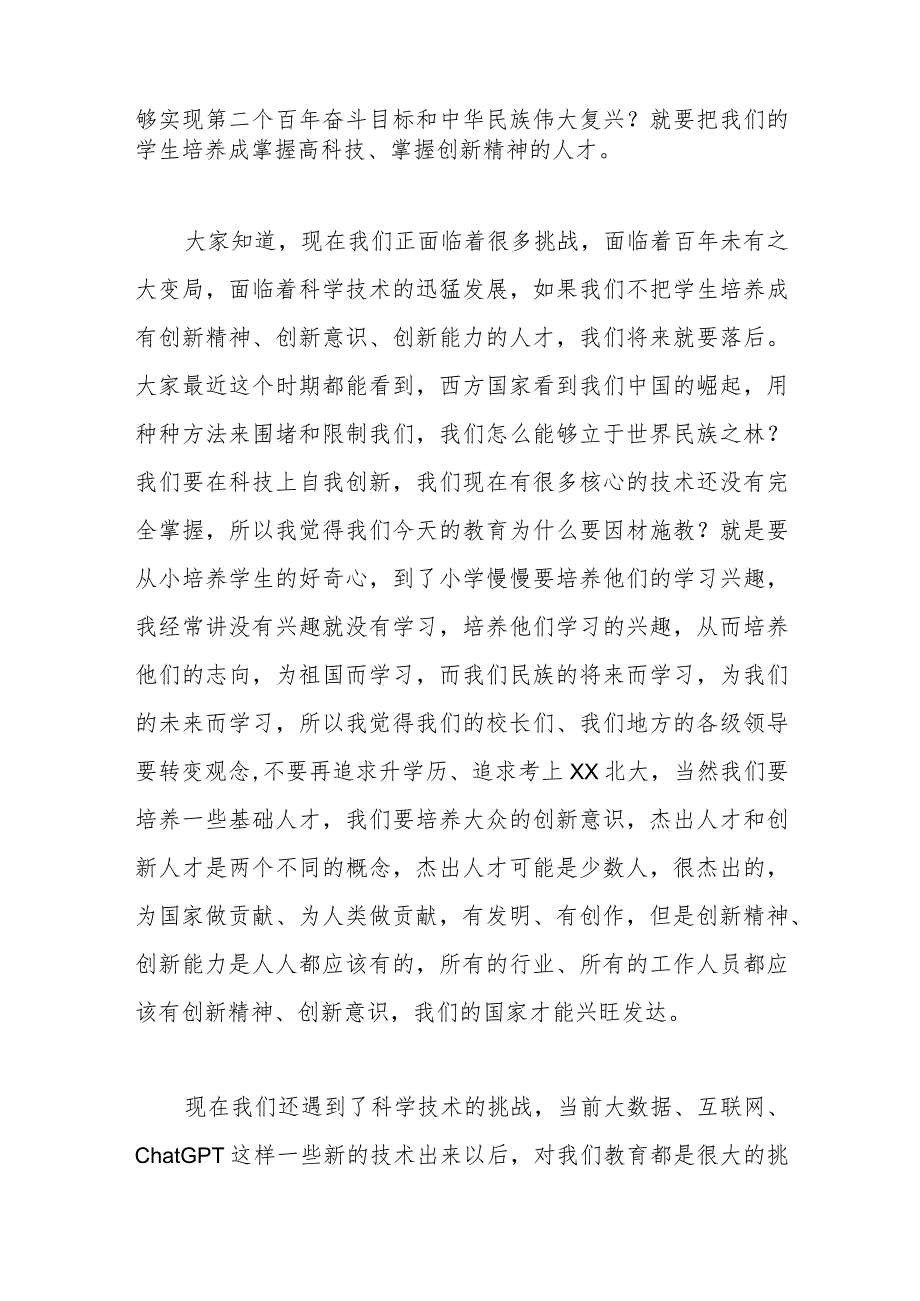 够实现第二个百年奋斗目标和中华民族伟大复兴？就要把我们的
学生培养成掌握高科技、掌握创新精神的人才。
大家知道，现在我们正面临着很多挑战，面临着百年未有之
大变局，面临着科学技术的迅猛发展，如果我们不把学生培养成
有创新精神、创新意识、创新能力的人才，我们将来就要落后。
大家最近这个时期都能看到，西方国家看到我们中国的崛起，用
种种方法来围堵和限制我们，我们怎么能够立于世界民族之林？
我们要在科技上自我创新，我们现在有很多核心的技术还没有完
全掌握，所以我觉得我们今天的教育为什么要因材施教？就是要
从小培养学生的好奇心，到了小学慢慢要培养他们的学习兴趣，
我经常讲没有兴趣就没有学习，培养他们学习的兴趣，从而培养
他们的志向，为祖国而学习，而我们民族的将来而学习，为我们
的未来而学习，所以我觉得我们的校长们、我们地方的各级领导
要转变观念,不要再追求升学历、追求考上 XX 北大，当然我们要
培养一些基础人才，我们要培养大众的创新意识，杰出人才和创
新人才是两个不同的概念，杰出人才可能是少数人，很杰出的，
为国家做贡献、为人类做贡献，有发明、有创作，但是创新精神、
创新能力是人人都应该有的，所有的行业、所有的工作人员都应
该有创新精神、创新意识，我们的国家才能兴旺发达。
现在我们还遇到了科学技术的挑战，当前大数据、互联网、
ChatGPT 这样一些新的技术出来以后，对我们教育都是很大的挑